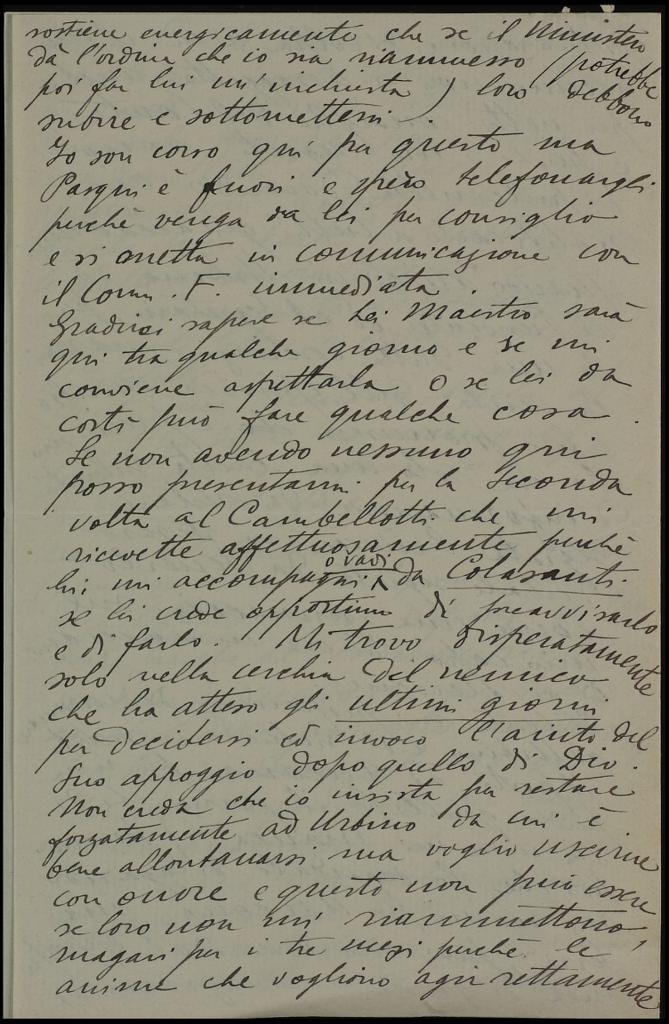 sostiene energicamente che se il Ministero
dà l'ordine che io sia riammesso (potrebbe
poi far lui un'inchiesta) loro debbono
subire e sottomettersi.
Io son corso qui per questo ma
Pasqui è fuori e spero telefonargli
perchè venga da lei per consiglio
e si metta in comunicazione con
il Comm. F. immediata.
Gradirei sapere se Lei Maestro sarà
qui tra qualche giorno e se mi
conviene aspettarla o se lei da
costì può fare qualche cosa.
Se non avendo nessuno qui
posso presentarmi per la seconda
volta al Cambellotti che mi
ricevette affettuosamente perchè
lui mi accompagni o vadi da Colasanti.
se lei crede opportuno di preavvisarlo
e di farlo. Mi trovo disperatamente
solo nella cerchia del nemico
che ha atteso gli ultimi giorni
per decidersi ed invoco l'aiuto del
Suo appoggio dopo quello di Dio.
Non creda che io insista per restare
forzatamente ad Urbino da cui è
bene allontanarsi ma voglio uscirne
con onore e questo non può essere
se loro non mi riammettono,
magari per i tre mesi perchè le
anime che vogliono agir rettamente